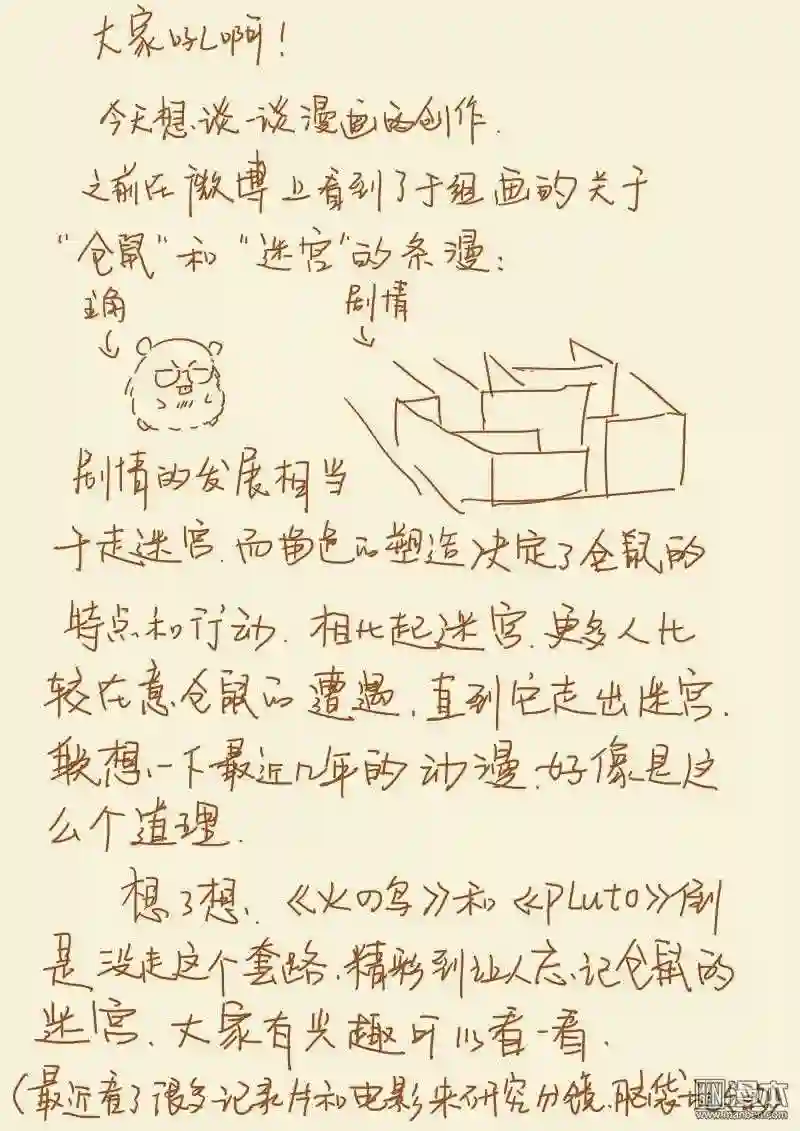 大家好啊！
今天想谈一谈漫画的创作.
之前在微博上看到了于组画的关于
“仓鼠”和“迷宫”的条漫：
主角 剧情
剧情的发展相当
于走迷宫.而角色的塑造决定了仓鼠的
特点和行动.相比起迷宫.更多人比
较在意仓鼠的遭遇,直到它走出迷宫.
联想一下最近几年的动漫.好像是这
么个道理.
想了想、《火の鸟》和《PLuto》倒
是没走这个套路.精彩到让人忘记仓鼠的
迷宫.大家有兴趣可以看一看.
(最近看了很多记录片和电影来研究分镜.脑袋
漫本
www.manben.com